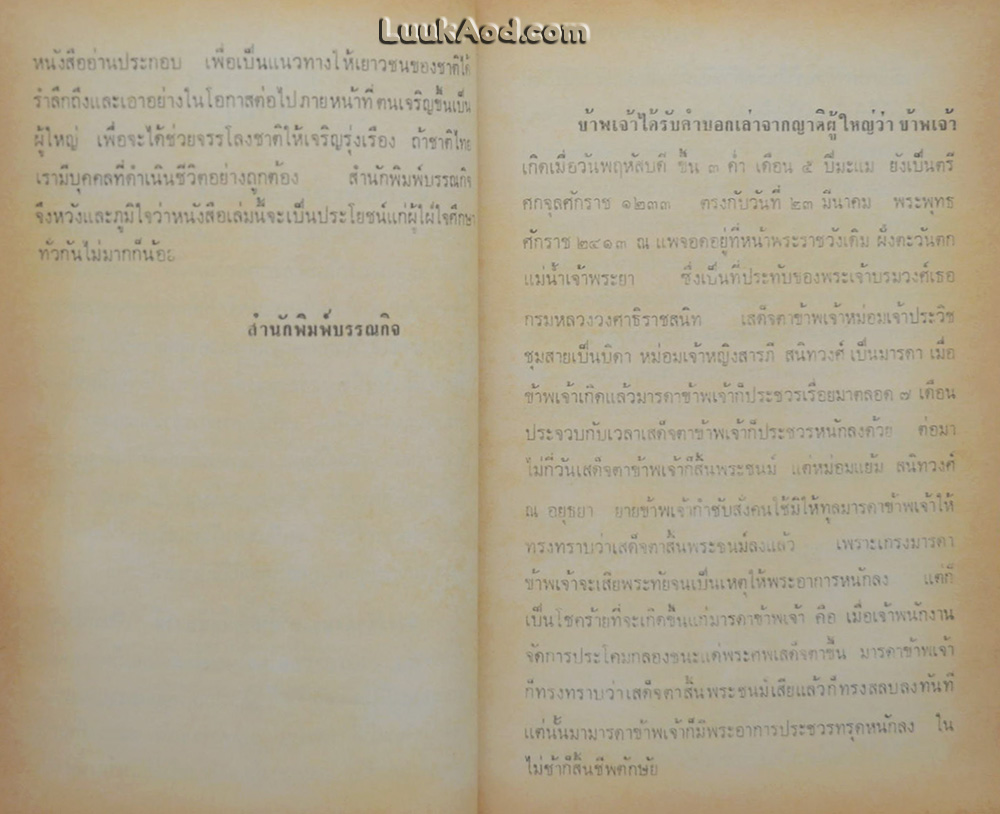 LuukAod.com
หนังสืออ่านประกอบ เพื่อเป็นแนวทางให้เยาวชนของชาติได้
รำลึกถึงและเอาอย่างในโอกาสต่อไปภายหน้าที่ตนเจริญขึ้นเป็น
ผู้ใหญ่ เพื่อจะได้ช่วยจรรโลงชาติให้เจริญรุ่งเรือง ถ้าชาติไทย
เรามีบุคคลที่ดำเนินชีวิตอย่างถูกต้อง สำนักพิมพ์บรรณกิจ
จึงหวังและภูมิใจว่าหนังสือเล่มนี้จะเป็นประโยชน์แก่ผู้ใฝ่ใจศึกษา
ทั่วกันไม่มากก็น้อย
สำนักพิมพ์บรรณกิจ
ข้าพเจ้าได้รับคำบอกเล่าจากญาติผู้ใหญ่ว่า ข้าพเจ้า
เกิดเมื่อวันพฤหัสบดี ขึ้น ๓ ค่ำ เดือน ๕ ปีมะแม ยังเป็นตรี
ศกจุลศักราช ๑๒๓๓ ตรงกับวันที่ ๒๓ มีนาคม พระพุทธ
ศักราช ๒๔๑๓ ณ แพจอดอยู่ที่หน้าพระราชวังเดิม ฝั่งตะวันตก
แม่น้ำเจ้าพระยา ซึ่งเป็นที่ประทับของพระเจ้าบรมวงศ์เธอ
กรมหลวงวงศาธิราชสนิท เสด็จตาข้าพเจ้าหม่อมเจ้าประวิช
ชุมสายเป็นบิดา หม่อมเจ้าหญิงสารภี สนิทวงศ์ เป็นมารดา เมื่อ
ข้าพเจ้าเกิดแล้วมารดาข้าพเจ้าก็ประชวรเรื่อยมาตลอด ๗ เดือน
ประจวบกับเวลาเสด็จตาข้าพเจ้าก็ประชวรหนักลงด้วย ต่อมา
ไม่กี่วันเสด็จตาข้าพเจ้าก็สิ้นพระชนม์ แต่หม่อมแย้ม สนิทวงศ์
ณ อยุธยา ยายข้าพเจ้ากำชับสั่งคนใช้มิให้ทูลมารดาข้าพเจ้าให้
ทรงทราบว่าเสด็จตาสิ้นพระชนม์ลงแล้ว เพราะเกรงมารดา
ข้าพเจ้าจะเสียพระทัยจนเป็นเหตุให้พระอาการหนักลง แต่ก็
เป็นโชคร้ายที่จะเกิดขึ้นแก่มารดาข้าพเจ้า คือ เมื่อเจ้าพนักงาน
จัดการประโคมกลองชนะแด่พระศพเสด็จตาขึ้น มารดาข้าพเจ้า
ก็ทรงทราบว่าเสด็จตาสิ้นพระชนม์เสียแล้วก็ทรงสลบลงทันที
แต่นั้นมามารดาข้าพเจ้าก็มีพระอาการประชวรทรุดหนักลง ใน
ไม่ช้าก็สิ้นชีพตักษัย